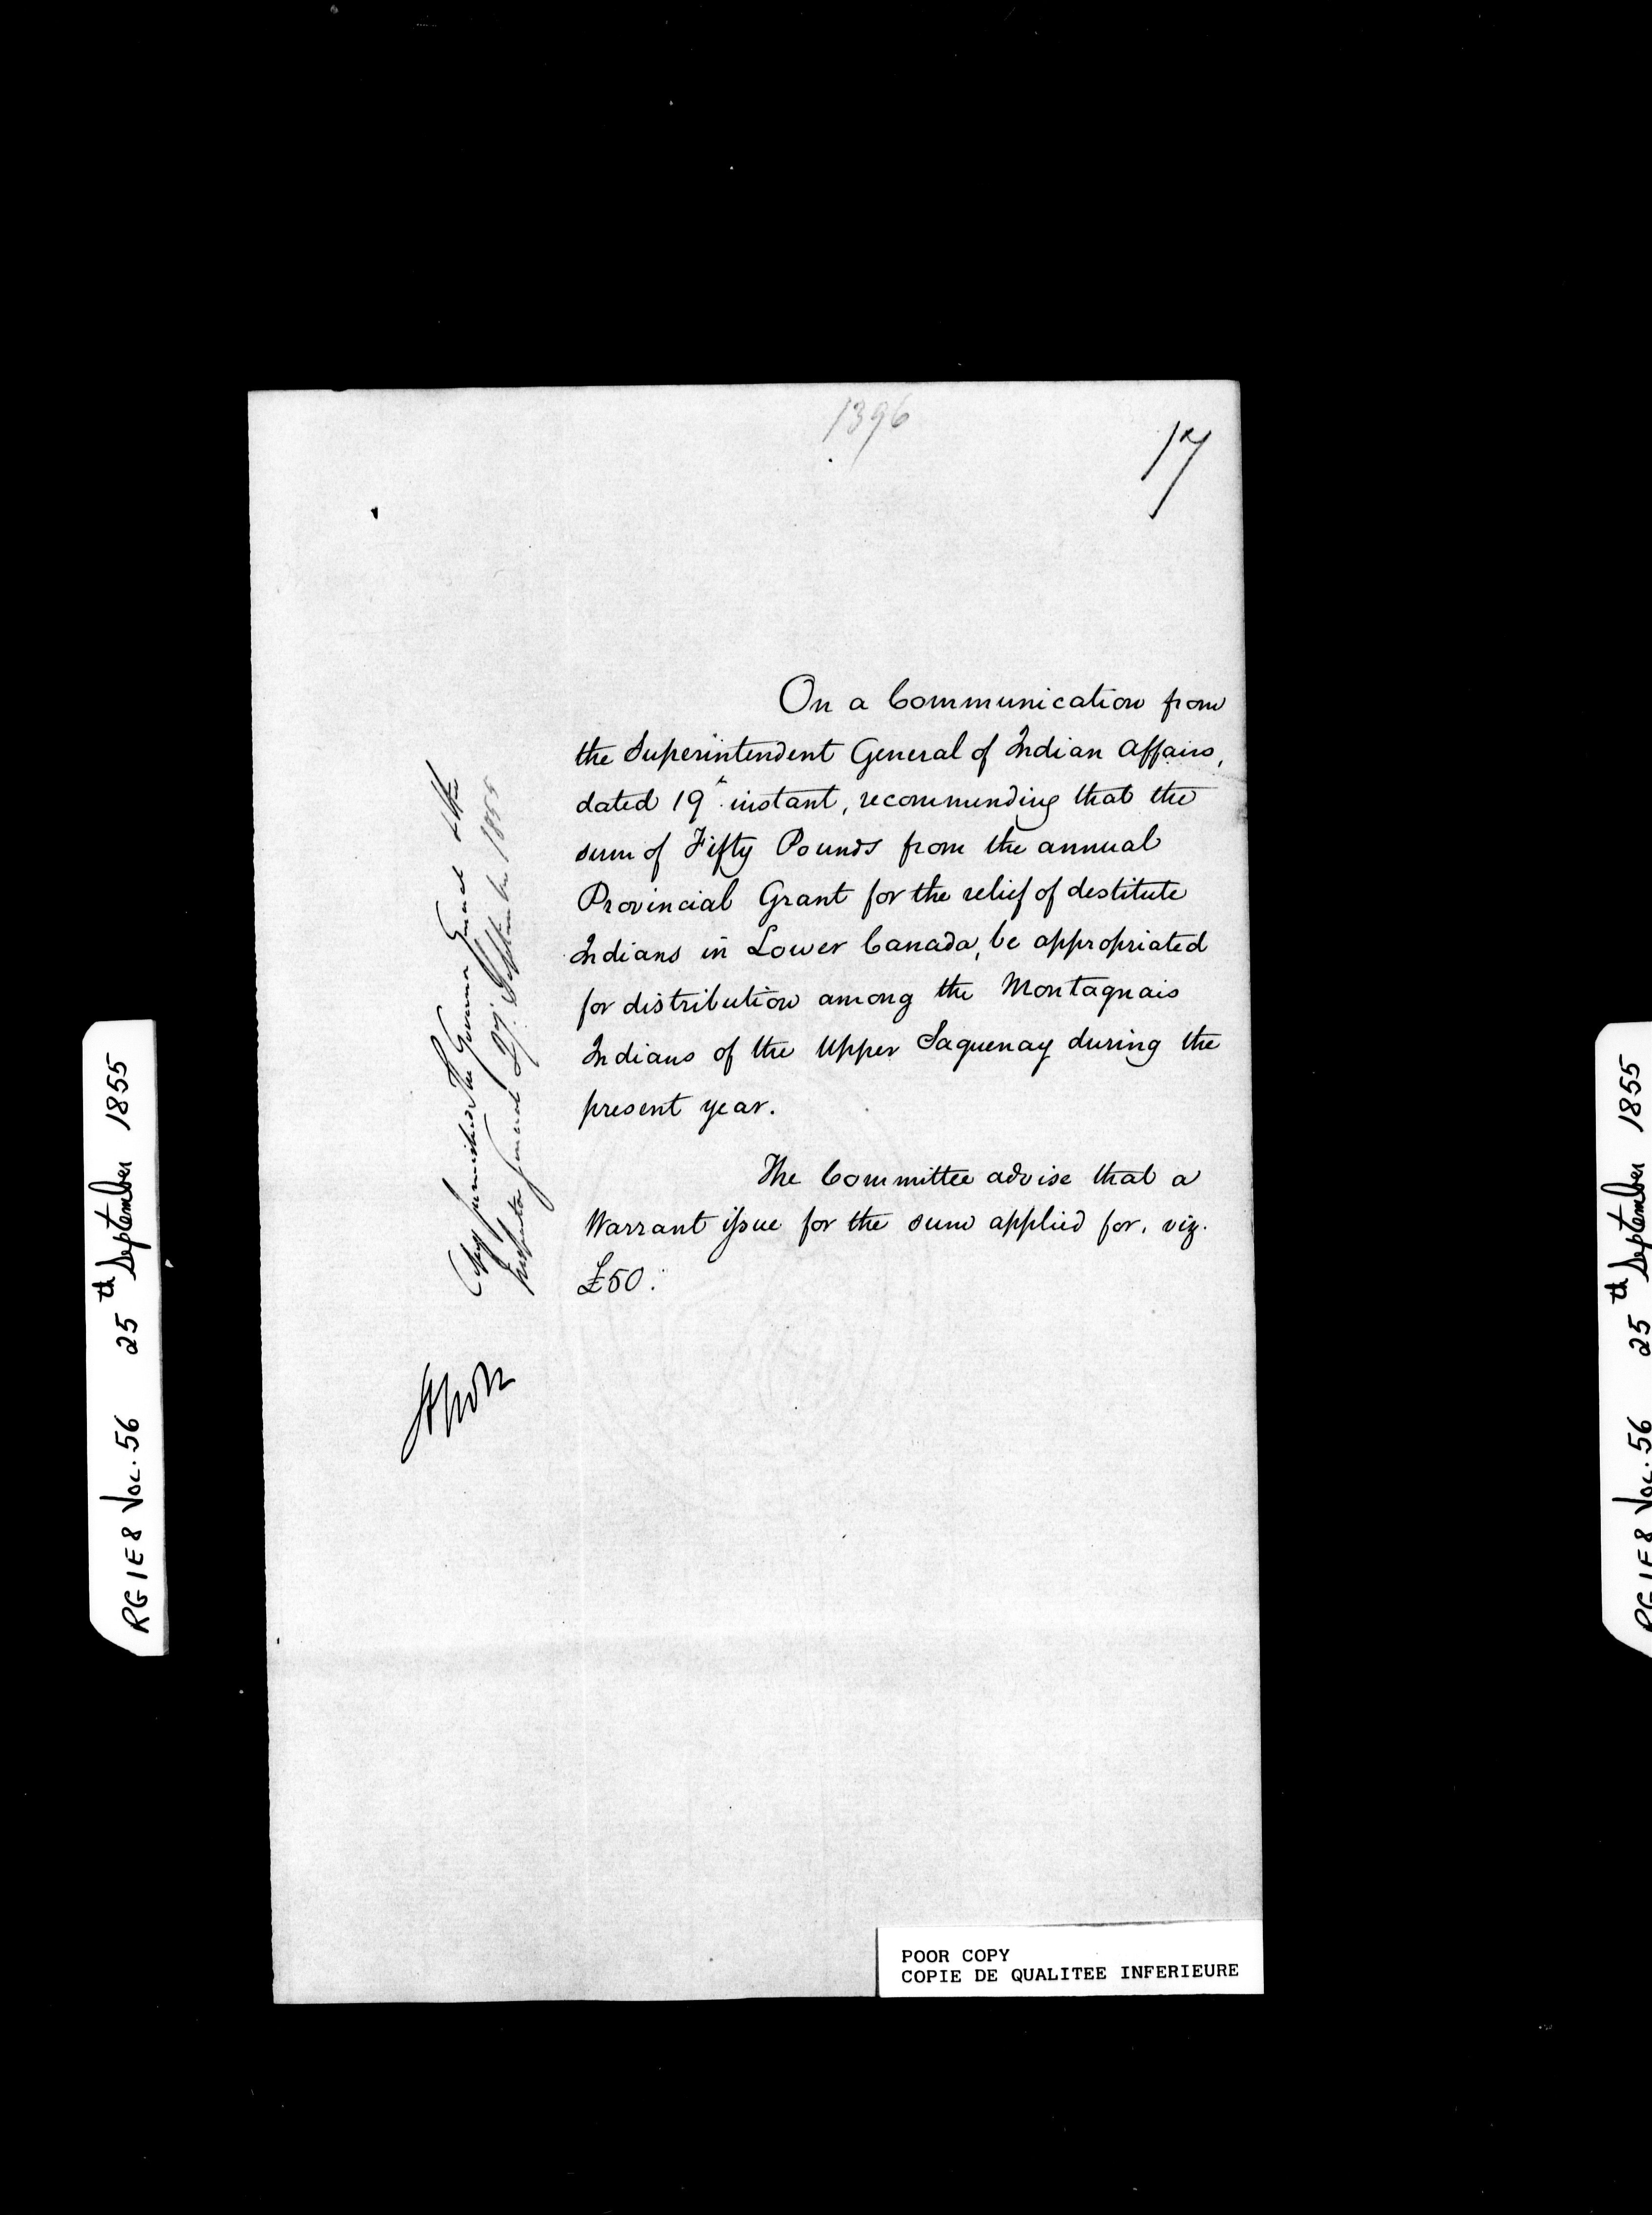 1396
17
On a Communication from
the Superintendent General of Indian Affairs,
dated 19th instant, recommending that the
sum of Fifty Pounds from the annual
Provincial Grant for the relief of destitute
Indians in Lower Canada, be appropriated
for distribution among the Montagnais
Indians of the Upper Saguenay during the
present year.
The Committee advise that a
Warrant issue for the sum applied for, viz.
£50.
Copy furnished The Governor General & the
Inspector General 27 September 1855
RG 1 E 8 Vol. 56 25th September 1855
RG 1 E 8 Vol. 56 25th September 1855
POOR COPY
COPIE DE QUALITEE INFERIEURE